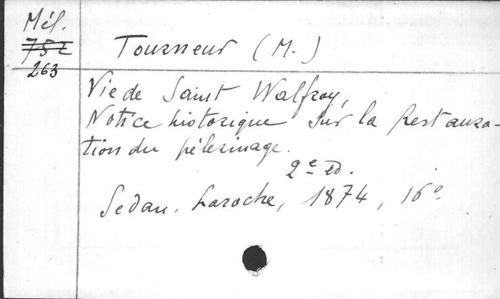 Mél.
752
263
Tourneur (M.)
Vie de Saint Walfroy,
Notice historique sur la Restaura-
tion du pélerinage.
2e éd.
Sedan, Laroche, 1874, 16o